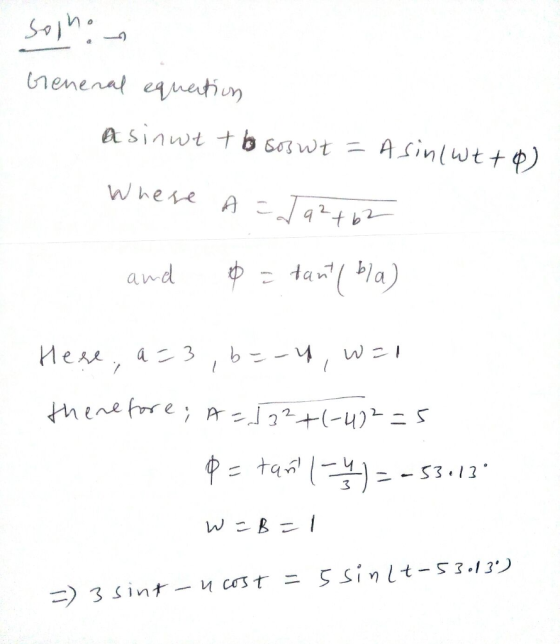 Soln: →
General equation
a sinwt + b coswt = A sin(wt + φ)
Where A = √a²+b²
and φ = tan⁻¹(b/a)
Here, a=3, b=-4, w=1
therefore; A = √3²+(-4)² = 5
φ = tan⁻¹(-4/3) = -53.13°
w = B = 1
⇒ 3 sint - 4 cost = 5 sin(t-53.13°)